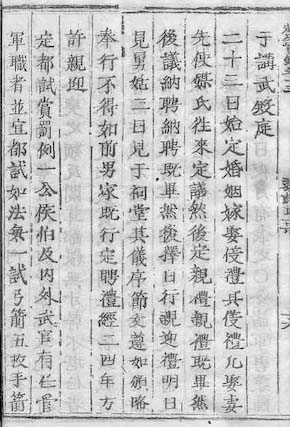 于講武殿庭
二十三日始定婚姻嫁娶儀禮其儀禮凡娶妻
先使媒氏徃來定議然後定親禮親禮既畢然
後議納聘納聘既畢然後擇日行親迎禮明日
見舅姑三日見于祠堂其儀序節文蓋如頒略
奉行不得如前男家既行定聘禮經三四年方
許親迎
定都試賞罰例一公侯伯及内外武官有仕管
軍職者並宜都試如法衆一試弓箭五枚手箭